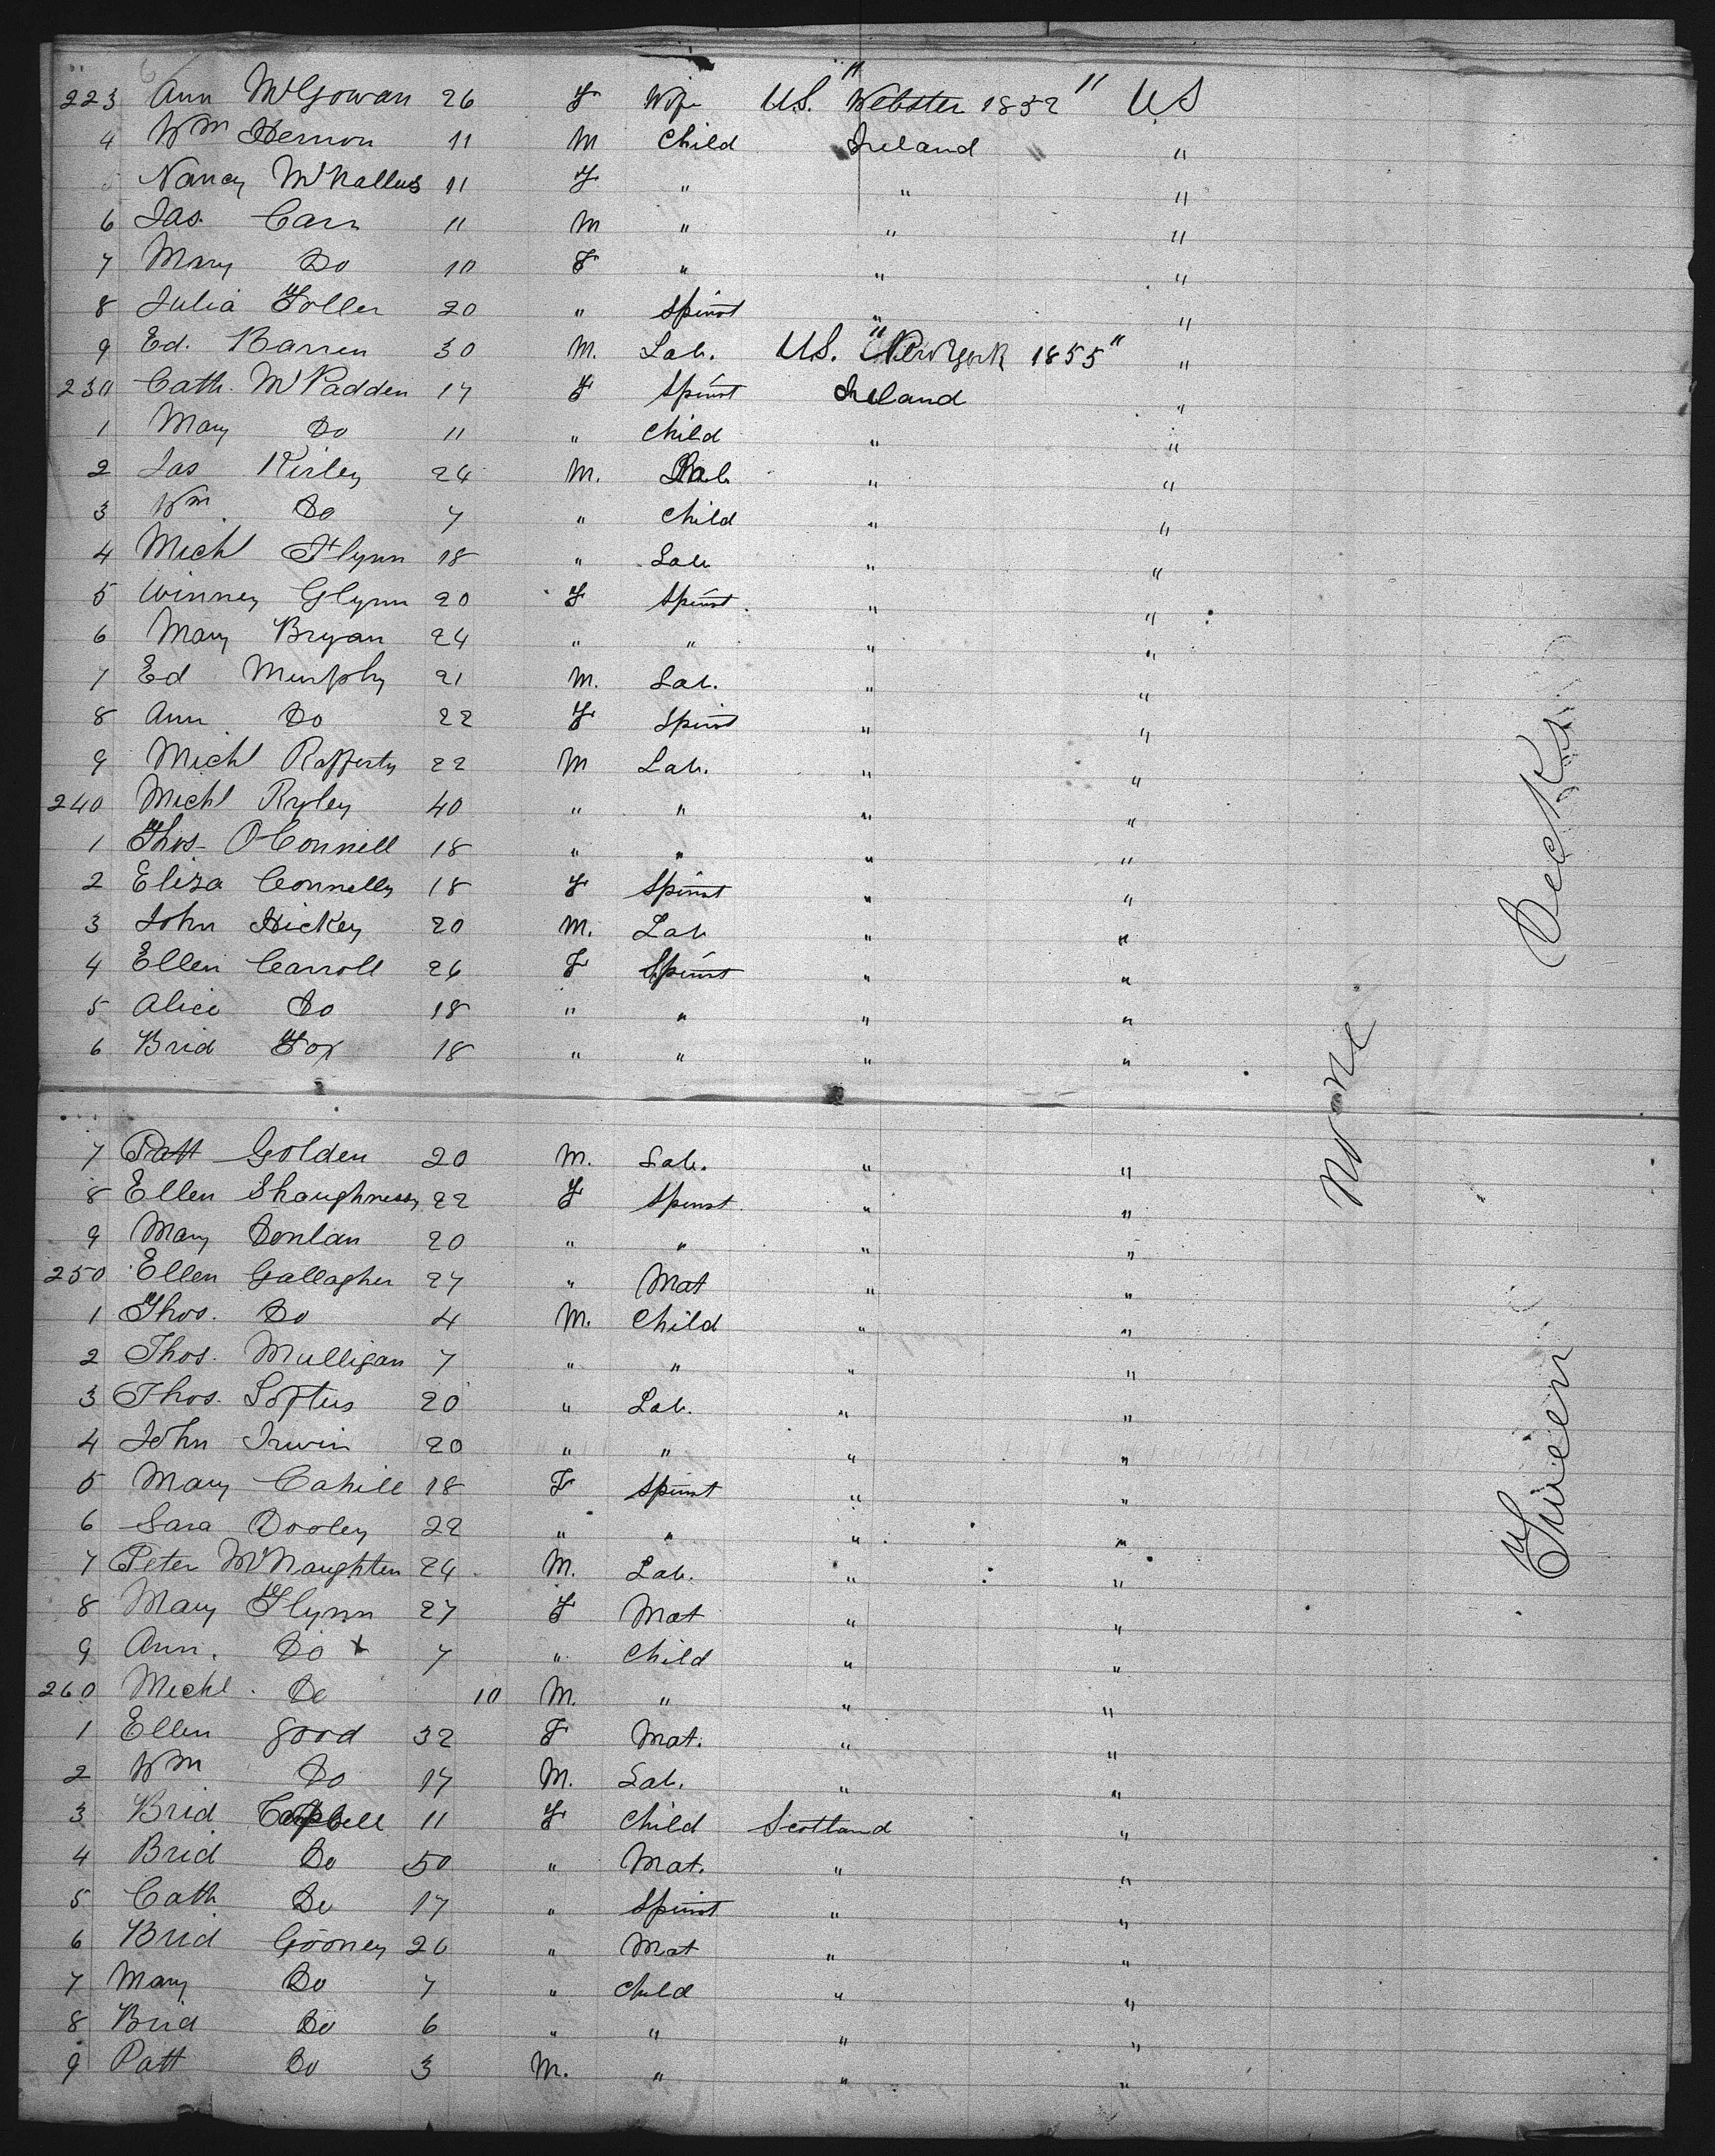 223 Ann McGowan 26 F Wife US. "Webster 1852" US
4 Wm Hernon 11 M Child Ireland " "
Nancy McNallus 11 F " " "
6 Jas. Carr 11 M " " "
7 Mary Do 10 F " " "
8 Julia Foller 20 " Spinst " "
9 Ed. Barren 30 M. Lab. US. "New York 1855" "
230 Cath. McPadden 17 F Spinst Ireland "
1 Mary Do 11 " Child " "
2 Jas Kirley 24 M. Lab " "
3 Wm Do 7 " Child " "
4 Michl Flynn 18 " Lab " "
5 Winney Glynn 20 F Spinst. " "
6 Mary Bryan 24 " " " "
7 Ed Murphy 21 M. Lab. " "
8 Ann Do 22 F Spinst " "
9 Michl Rafferty 22 M Lab. " "
240 Michl Ryley 40 " " " "
1 Thos O'Connell 18 " " " "
2 Eliza Connelly 18 F Spinst " "
3 John Hickey 20 M. Lab " "
4 Ellen Carroll 26 F Spinst " "
5 Alice Do 18 " " " "
6 Brid Fox 18 " " " "
7 Patt Golden 20 M. Lab. " "
8 Ellen Shaughnessy 22 F Spinst. " "
9 Mary Donlan 20 " " " "
250 Ellen Gallagher 27 " Mat " "
1 Thos. Do 4 M. Child " "
2 Thos. Mulligan 7 " " " "
3 Thos. Loftus 20 " Lab. " "
4 John Irwin 20 " " " "
5 Mary Cahill 18 F Spinst " "
6 Sara Dooley 22 " " " "
7 Peter McNaughten 24 M. Lab. " "
8 Mary Flynn 27 F Mat " "
9 Ann. Do x 7 " Child " "
260 Michl. Do 10 M. " " "
1 Ellen Good 32 F Mat. " "
2 Wm Do 17 M. Lab. " "
3 Brid Campbell 11 F Child Scotland "
4 Brid Do 50 " Mat. " "
5 Cath Do 17 " Spinst " "
6 Brid Gooney 26 " Mat " "
7 Mary Do 7 " Child " "
8 Brid Do 6 " " " "
9 Patt Do 3 M. " " "
None
Tween Decks